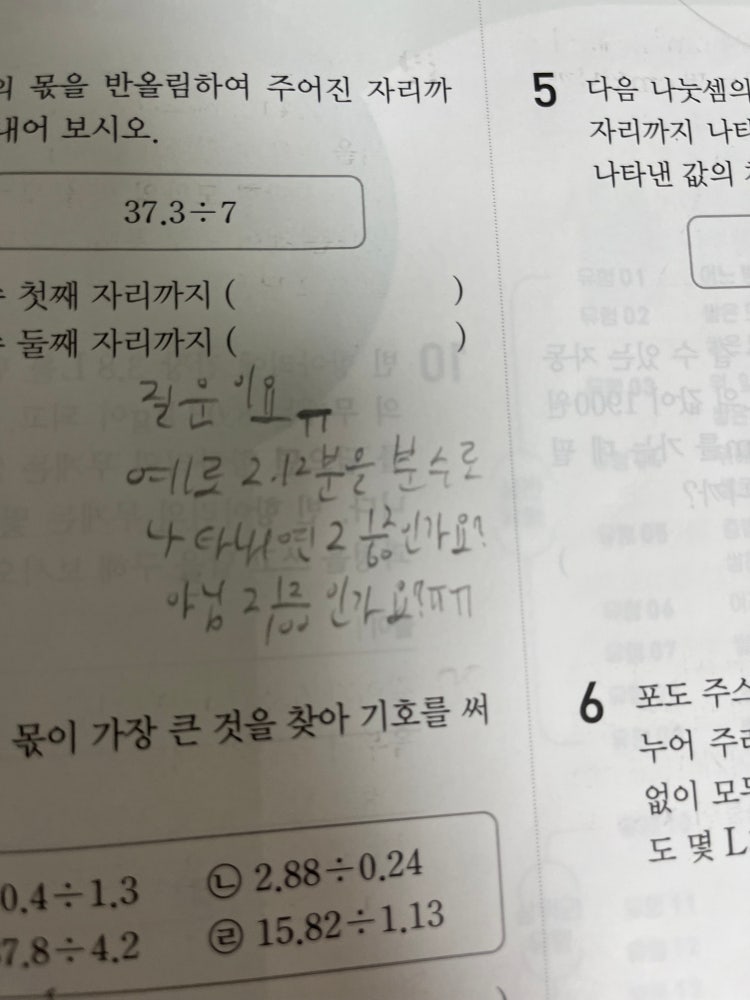 의 몫을 반올림하여 주어진 자리까
내어 보시오.
37.3÷7
첫째 자리까지 ( )
둘째 자리까지 ( )
질문이요ㅠ
예로 2.12분을 분수로
나타내면 2 12/60 인가요?
아님 2 12/100 인가요?ㅠㅠ
몫이 가장 큰 것을 찾아 기호를 써
0.4÷1.3
㉡ 2.88÷0.24
37.8÷4.2
㉣ 15.82÷1.13
5 다음 나눗셈의
자리까지 나타
나타낸 값의
6 포도 주스
누어 주려
없이 모두
도 몇 L